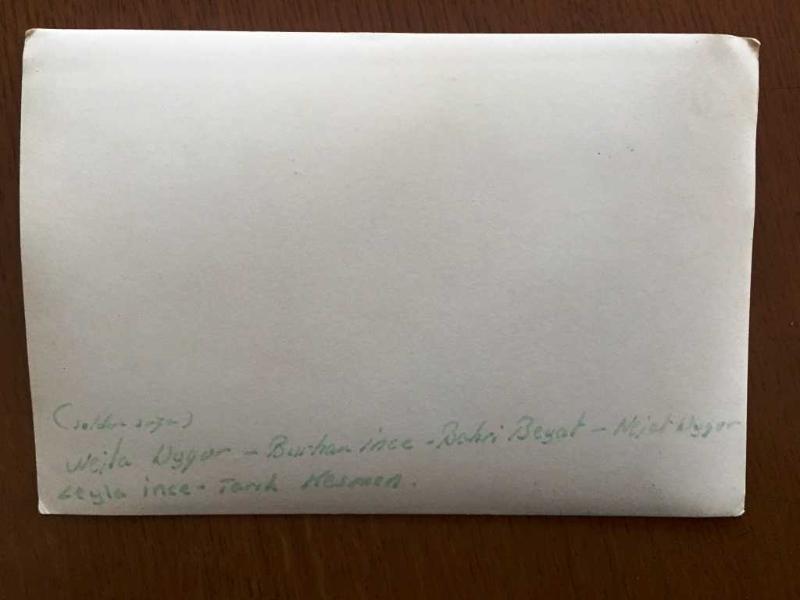 (soldan sağa)
Nejla Uygur - Burhan ince - Bahri Beyat - Nejat Uygur
Leyla ince - Tarık Kesmen.